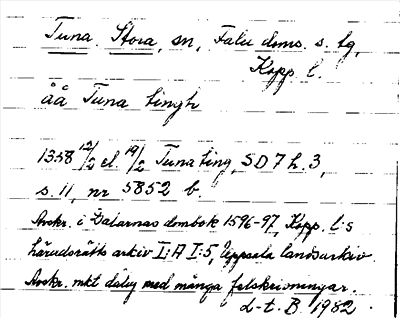 Tuna. Stora, sn, Falu doms. s. tg,
Kopp. l.
åå Tuna tingh
1358 12/2 el 19/2 Tuna ting, SD 7 h. 3,
s. 11, nr 5852 b.
Avskr. i Dalarnas dombok 1596-97, Kopp. l:s
häradsrätts arkiv I:A I:5, Uppsala landsarkiv.
Avskr. mkt dålig med många felskrivningar.
L-t. B. 1982.